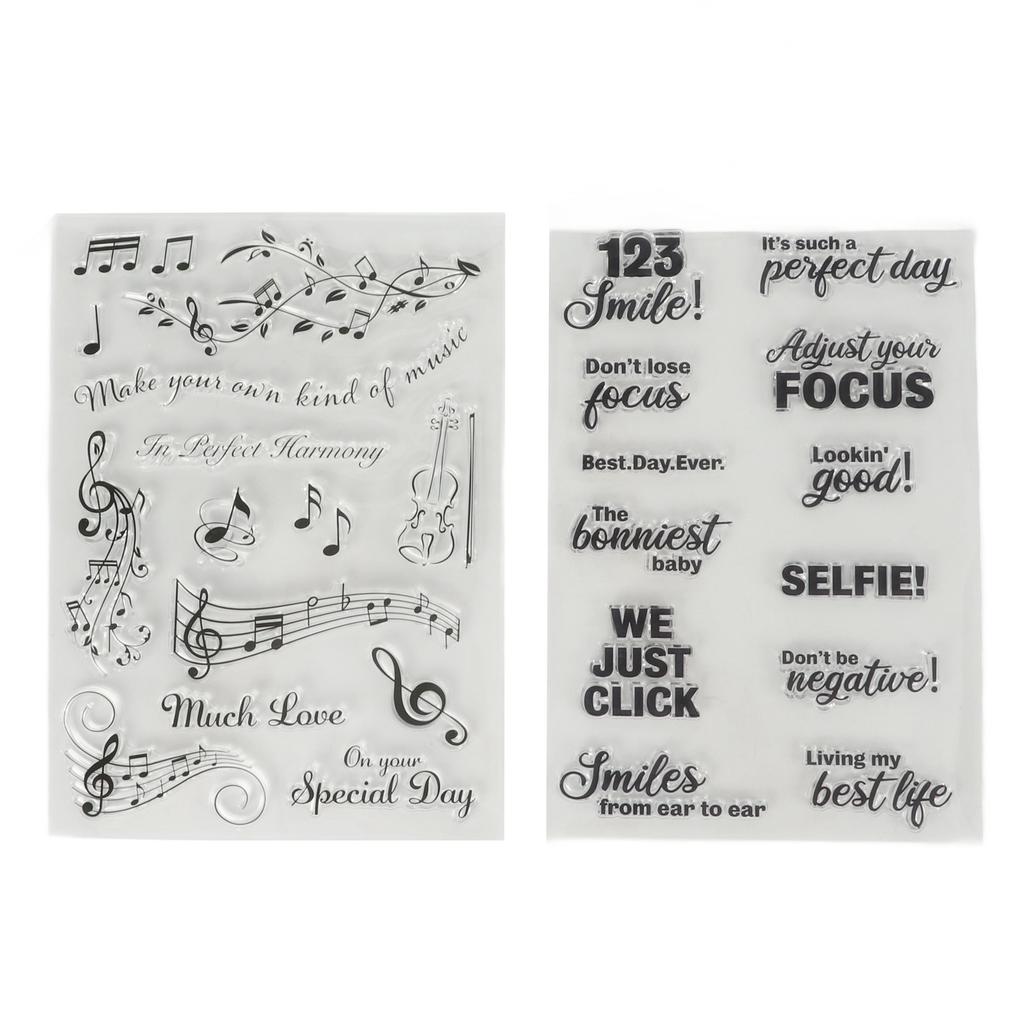 Make your own kind of music
In Perfect Harmony
Much Love
On your
Special Day
123
Smile!
Don't lose
focus
Best.Day.Ever.
The
bonniest
baby
WE
JUST
CLICK
Smiles
from ear to ear
It's such a
perfect day
Adjust your
FOCUS
Lookin'
good!
SELFIE!
Don't be
negative!
Living my
best life